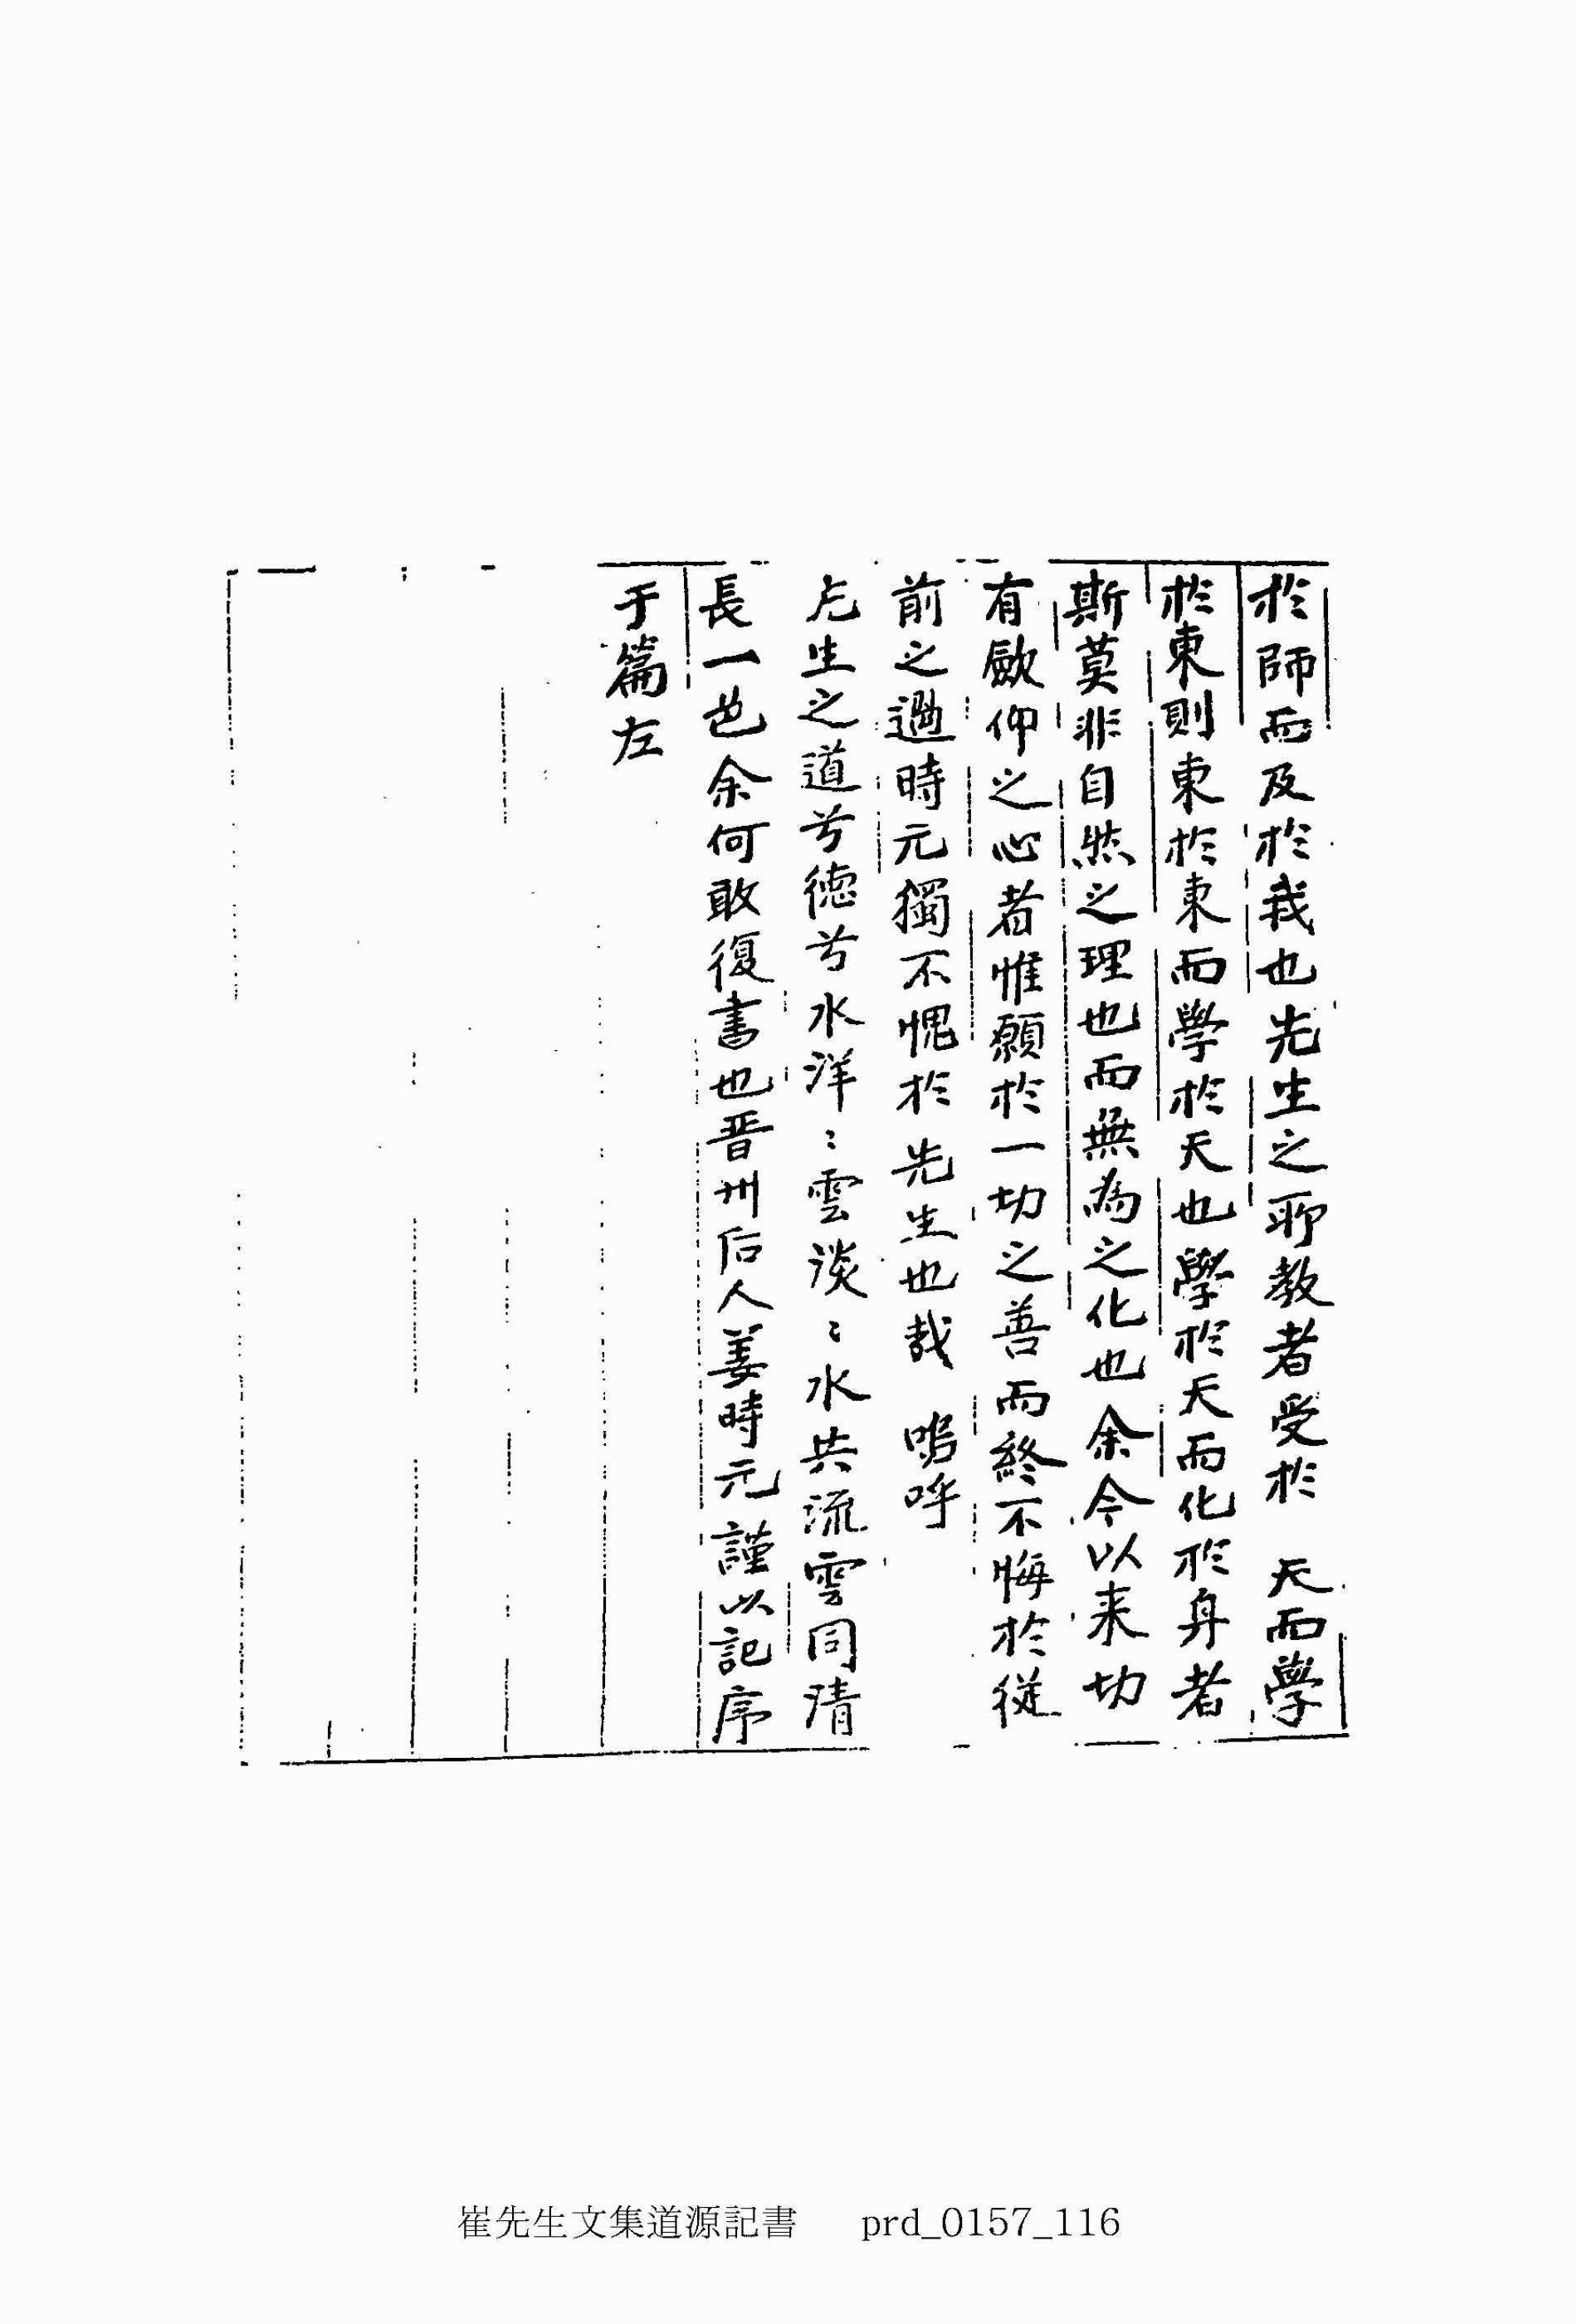 於師而及於我也先生之所教者受於 天而學
於東則東於東而學於天也學於天而化於身者
斯莫非自然之理也而無為之化也余今以来切
有歉仰之心者惟願於一切之善而終不悔於從
前之過時元獨不愧於先生也哉 嗚呼
先生之道兮德兮水洋ゝ雲淡ゝ水共流雲同清
長一色余何敢復書也晋州后人姜時元謹以記序
于篇左
崔先生文集道源記書 prd_0157_116